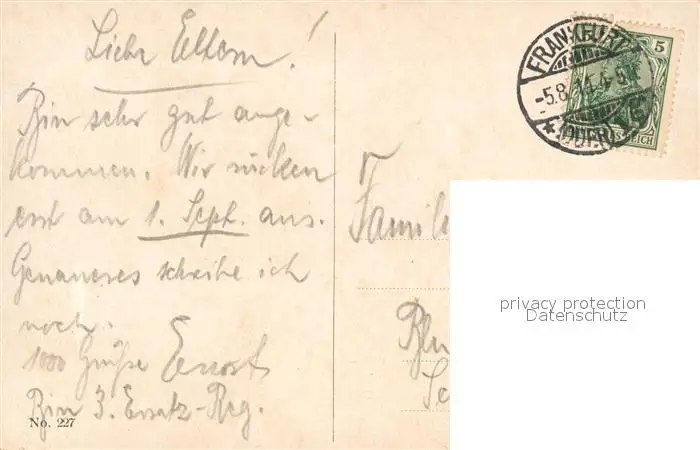 Liebe Eltern!
Bin sehr gut ange-
kommen. Wir rücken
erst am 1. Sept. aus.
Genaueres schreibe ich
noch.
1000 Grüße Ernst
Bin 3. Ersatz-Reg.
No. 227
FRANKFURT
-5.8.14.4-5N
* (ODER)
5
REICH
Famil
privacy protection
Datenschutz